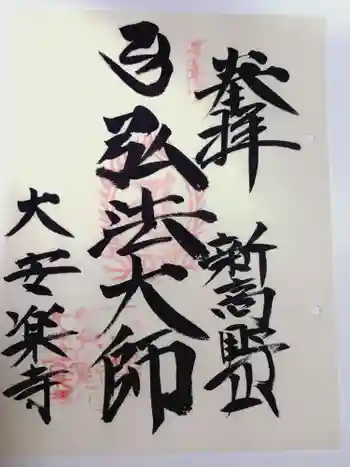 奉拝 新高野山
弘法大師
大安楽寺